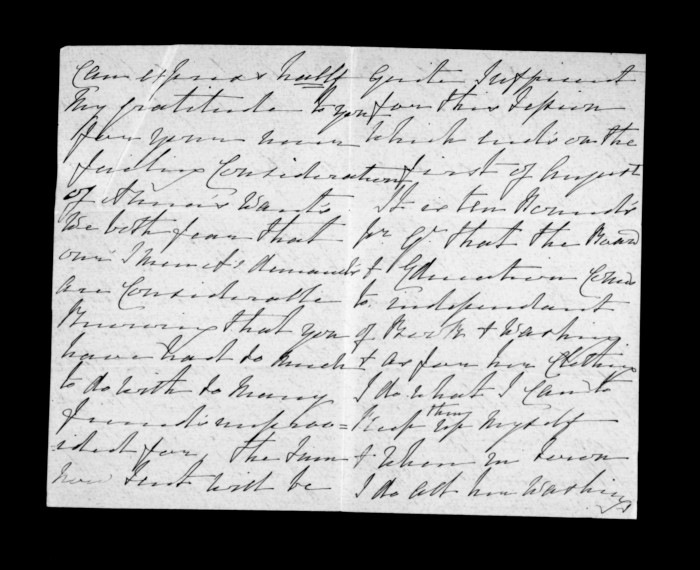 Can express half
My gratitude to you
for your never
failing Consideration
of Anna's Wants
We both fear that
our Iman et's demands
are Considerable
Knowing that you
have had so much
to do with so Many
friends unprov=
ided for, the Sum
now Sent will be
Quite Sufficient
for this Session
Which ends on the
first of August
It is ten Pounds
pr Qr that the Board
& Education Come
to independant
of Books & Washing
& as for her Clothing
I do what I can to
Keep them up Myself
& When in Town
I do all her Washing